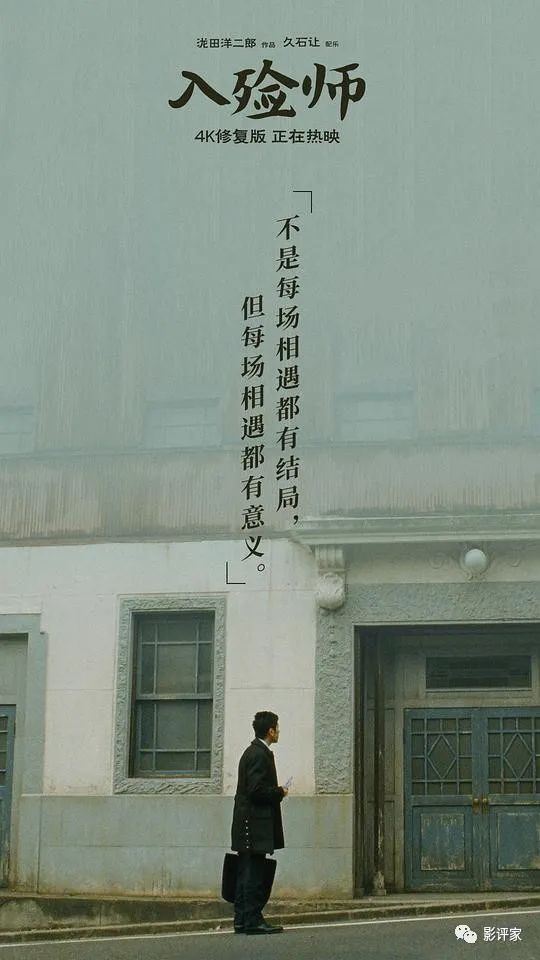 泷田洋二郎 作品 久石让 配乐
入殓师
4K修复版 正在热映
「不是每场相遇都有结局，
但每场相遇都有意义。」
影评家